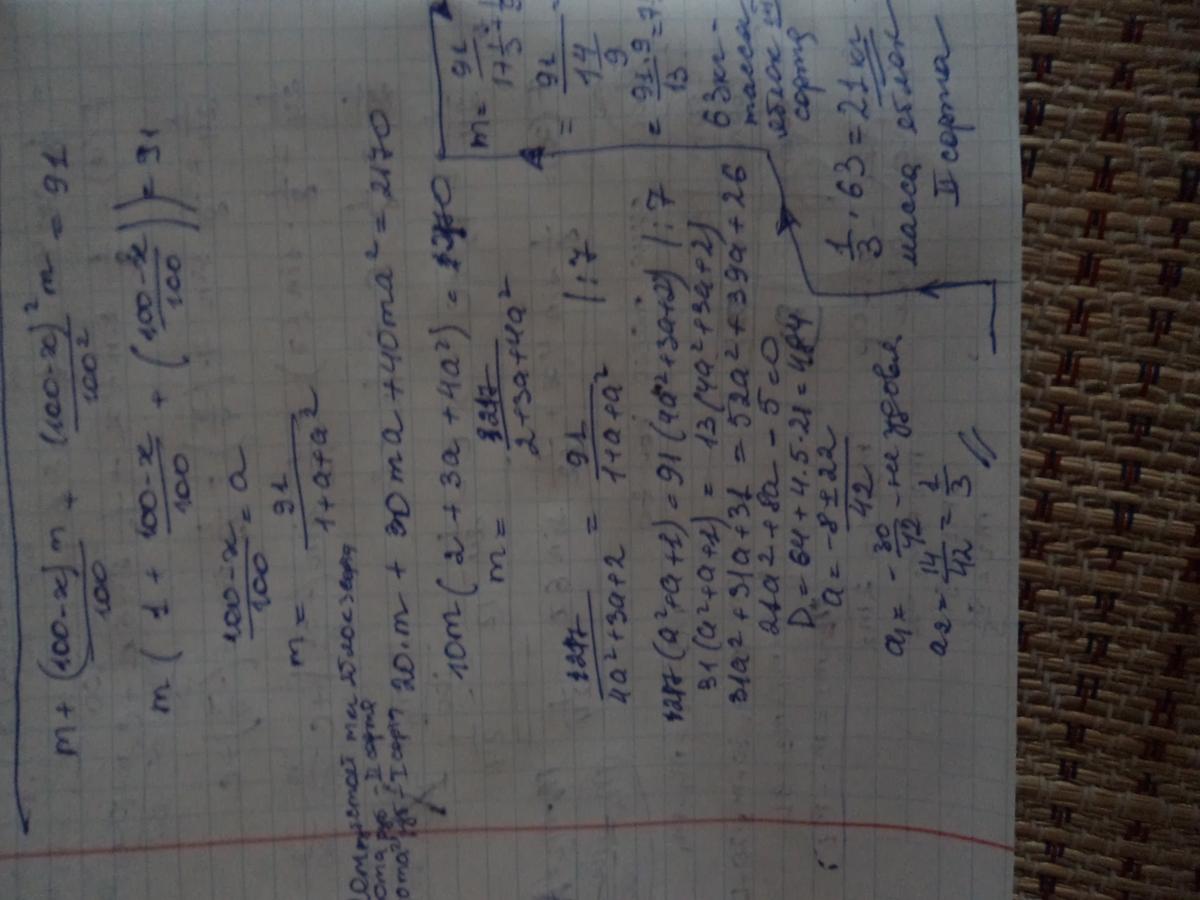 m + (100-x)m/100 + (100-x)²m/100² = 91
m(1 + (100-x)/100 + ((100-x)/100)²) = 91
(100-x)/100 = a
m = 91/(1+a+a²)
20·m + 30ma + 40ma² = 2170
10m(2 + 3a + 4a²) = 2170
m = 217/(2+3a+4a²)
217/(4a²+3a+2) = 91/(1+a+a²) |:7
217(a²+a+1) = 91(4a²+3a+2) |:7
31(a²+a+1) = 13(4a²+3a+2)
31a²+31a+31 = 52a²+39a+26
21a²+8a-5=0
D = 64+4·5·21 = 484
a = (-8±22)/42
a₁ = -30/42 - не удовл
a₂ = 14/42 = 1/3
m = 91/
= 91/
= 91·9/13 =
63кг -
масса
яблок
сорта
1/3 · 63 = 21 кг
масса яблок
II сорта